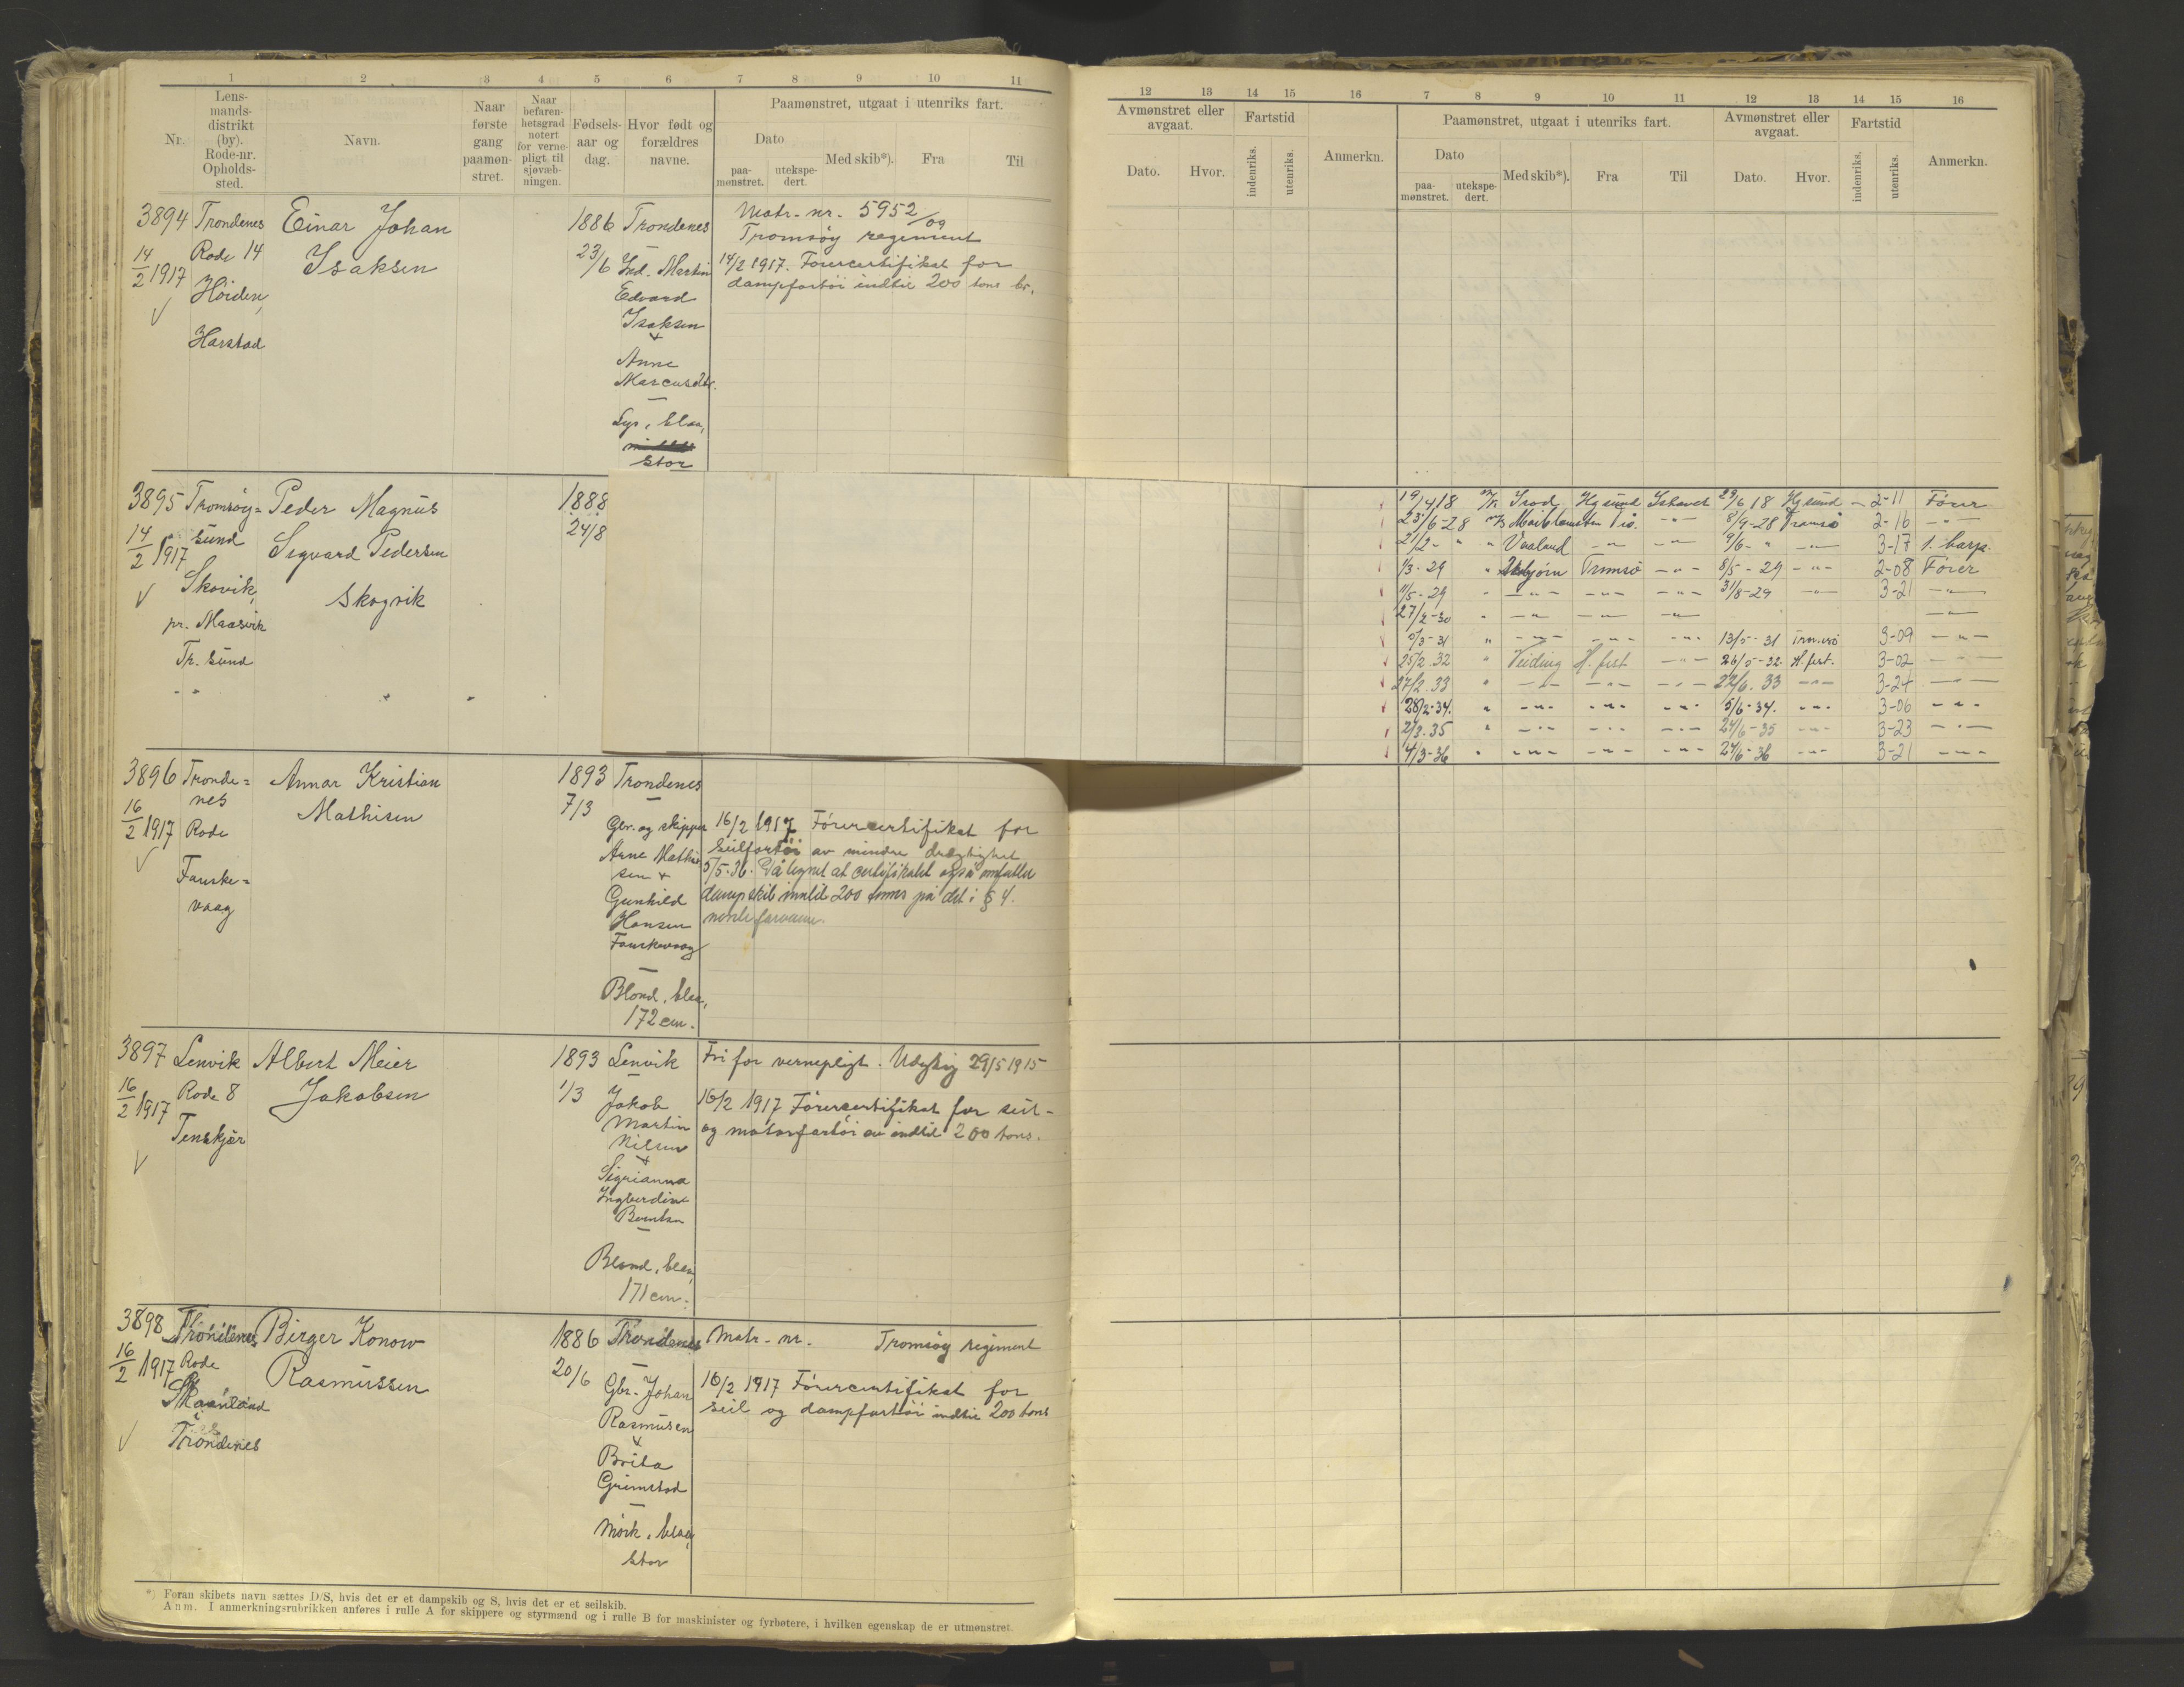 1 2 3 4 5 6 7 8 9 10 11
Nr.
Lens-
mands-
distrikt
(by).
Rode-nr.
Opholds-
sted.
Navn.
Naar
første
gang
paamøn-
stret.
Naar
befaren-
hetsgrad
notert
for verne-
pligt til
sjøvæb-
ningen.
Fødsels-
aar og
dag.
Hvor født og
forældres
navne.
Paamønstret, utgaat i utenriks fart.
Dato
paa-
mønstret.
utekspe-
dert.
Med skib*).
Fra
Til
3894
14/2 1917
Trondenes
Rode 14
Höiden,
Harstad
Einar Johan
Isaksen
1886
23/6
Trondenes
Ind. Martin
Edvard
Isaksen
+
Anne
Marcusdtr.
Lys, blaa,
stor
Matr.-nr. 5952/09
Tromsöy regiment
14/2 1917. Förercertifikat for
dampfartöi indtil 200 tons br.
3895
14/2 1917
Tromsöy=
sund
Skovik,
pr. Maasvik
Tr. sund
Peder Magnus
Sigvard Pedersen
Skogvik
1888
24/8
3896
16/2 1917
Tronde=
nes
Rode
Fauske=
vaag
Annar Kristian
Mathisen
1893
7/3
Trondenes
Gbr. og skipper
Arne Mathi
sen +
Gunhild
Hansen
Fauskevaag
Blond, blaa,
172 cm.
16/2 1917 Förercertifikat for
seilfartöi av mindre drægtighet
5/5-36. Påtegnet at certifikatet også omfatter
dampskib inntil 200 tonns på det i § 4.
nevnte farvann.
3897
16/2 1917
Lenvik
Rode 8
Tenskjær
Albert Meier
Jakobsen
1893
1/3
Lenvik
Jakob
Martin
Nilsen
+
Sigrianna
Ingberdine
Berntsen
Blond, blaa,
171 cm.
Fri for vernepligt. Udygtig 29/5 1915
16/2 1917 Förercertifikat for seil-
og motorfartöi av indtil 200 tons.
3898
16/2 1917
Trondenes
Rode
Skaanland
Trondenes
Birger Konow
Rasmussen
1886
20/6
Trondenes
Gbr. Johan
Rasmusen
+
Brita
Grimstad
Mörk, blaa,
stor
Matr.-nr. Tromsöy regiment
16/2 1917 Förercertifikat for
seil og dampfartöi indtil 200 tons
*) Foran skibets navn sættes D/S, hvis det er et dampskib og S, hvis det er et seilskib.
Anm. I anmerkningsrubrikken anføres i rulle A for skippere og styrmænd og i rulle B for maskinister og fyrbøtere, i hvilken egenskap de er utmønstret.
12 13 14 15 16 7 8 9 10 11 12 13 14 15 16
Avmønstret eller
avgaat.
Dato.
Hvor.
Fartstid
indenriks.
utenriks.
Anmerkn.
Paamønstret, utgaat i utenriks fart.
Dato
paa-
mønstret.
utekspe-
dert.
Med skib*).
Fra
Til
Avmønstret eller
avgaat.
Dato.
Hvor.
Fartstid
indenriks.
utenriks.
Anmerkn.
19/4 18 M/K Hgsund Ishavet 29/6 18 Hgsund - 2-11 Förer
23/6-28 M/S Tsö. -"- 8/9-28 Tromsö 2-16 -"-
21/2- " " Vaaland -"- -"- 9/6- " -"- 3-17 1. harp.
1/3-29 " Isbjörn Tromsö -"- 8/5-29 -"- 2-08 Förer
11/5-29 " -"- -"- -"- 31/8-29 -"- 3-21 -"-
27/2-30 " -"- -"- -"- -"-
5/3-31 " -"- -"- -"- 13/5-31 Tromsö 3-09 -"-
25/2.32 " Veiding H.fest -"- 26/5-32. H.fest. 3-02 -"-
27/2.33 " -"- -"- -"- 22/6.33 -"- 3-24 -"-
28/2-34. " -"- -"- -"- 5/6-34. -"- 3-06 -"-
2/3.35 " -"- -"- -"- 24/6-35 -"- 3-23 -"-
4/3-36 " -"- -"- -"- 24/6-36 -"- 3-21 -"-